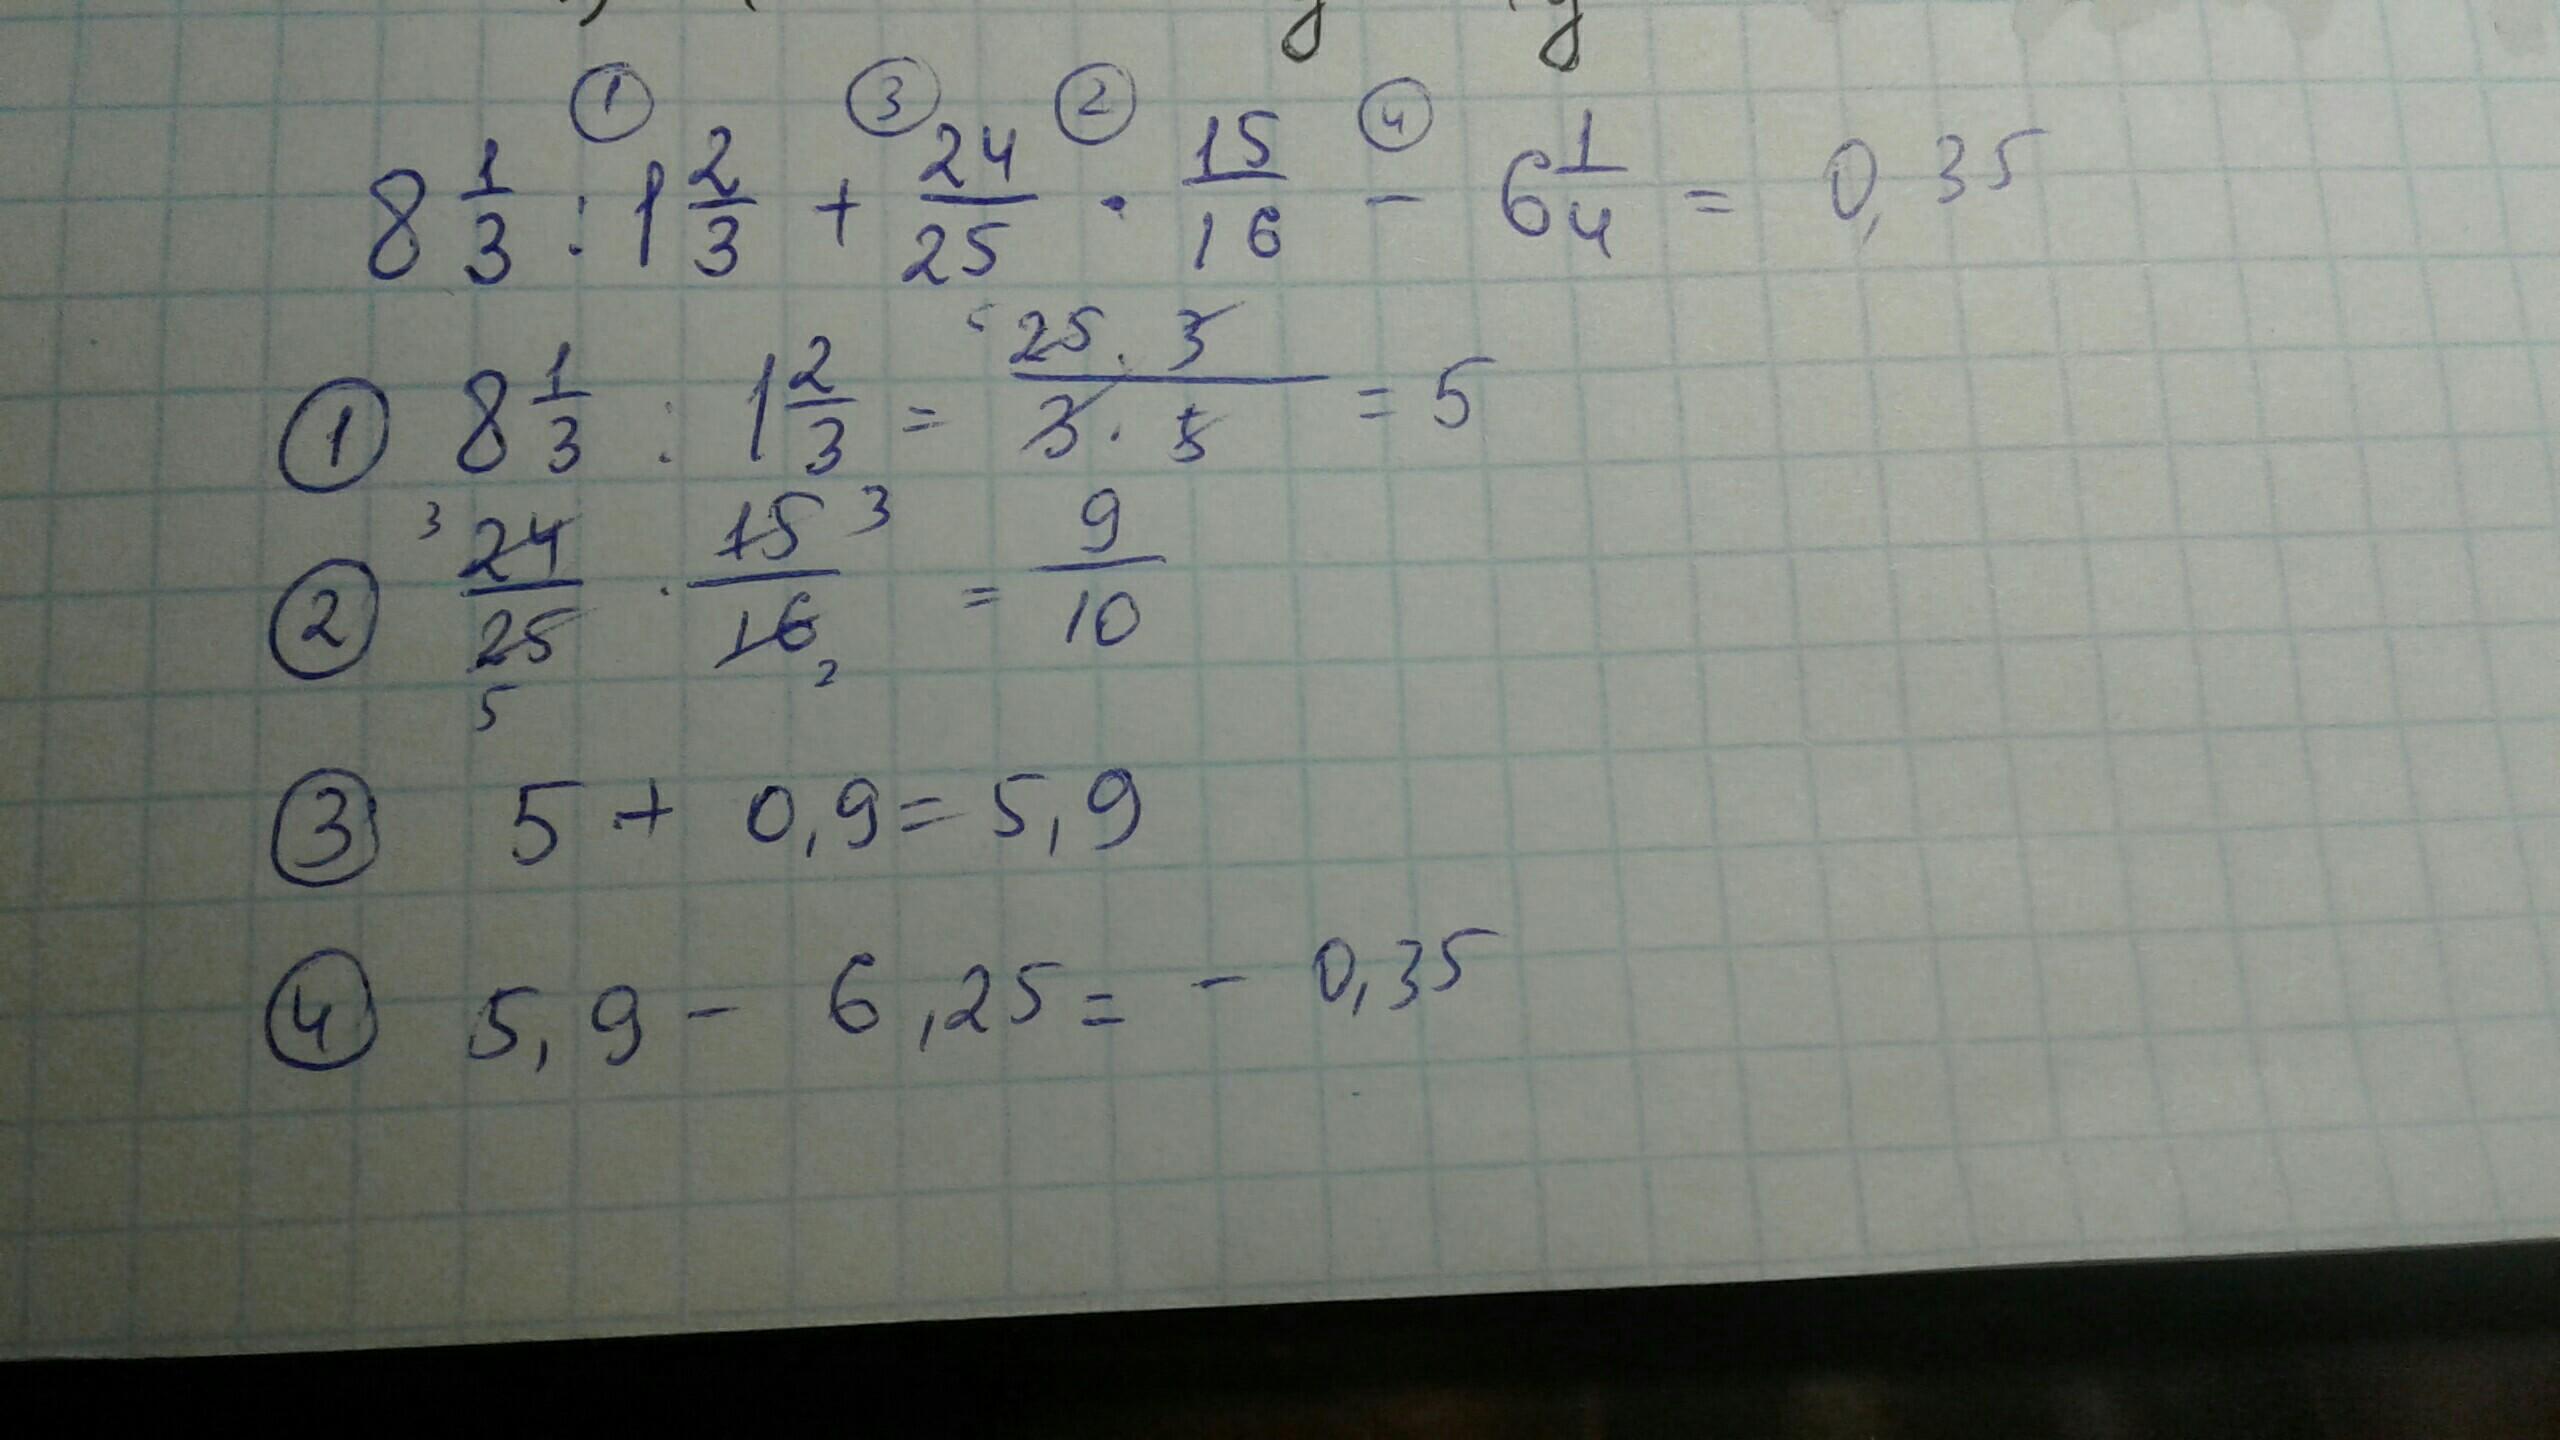 ① ③ ② ④
8 1/3 : 1 2/3 + 24/25 · 15/16 - 6 1/4 = 0,35
① 8 1/3 : 1 2/3 = 5 25 · 3 / 3 · 5 = 5
② 3 24/25 5 · 15 3/16 2 = 9/10
③ 5 + 0,9 = 5,9
④ 5,9 - 6,25 = - 0,35